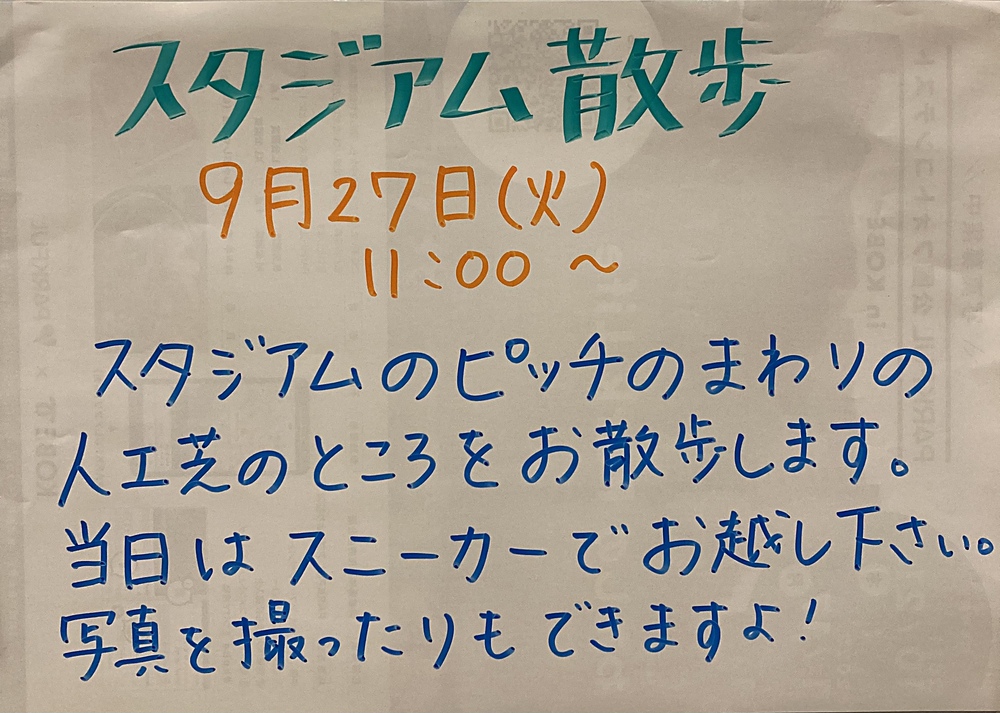 スタジアム散歩
9月27日(火)
11:00 〜
スタジアムのピッチのまわりの
人工芝のところをお散歩します。
当日はスニーカーでお越し下さい。
写真を撮ったりもできますよ!